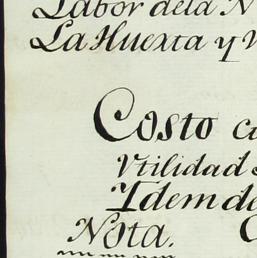 Labor dela N
La Huerta y V
Costo c
Vtilidad
Idem de
Nota. C